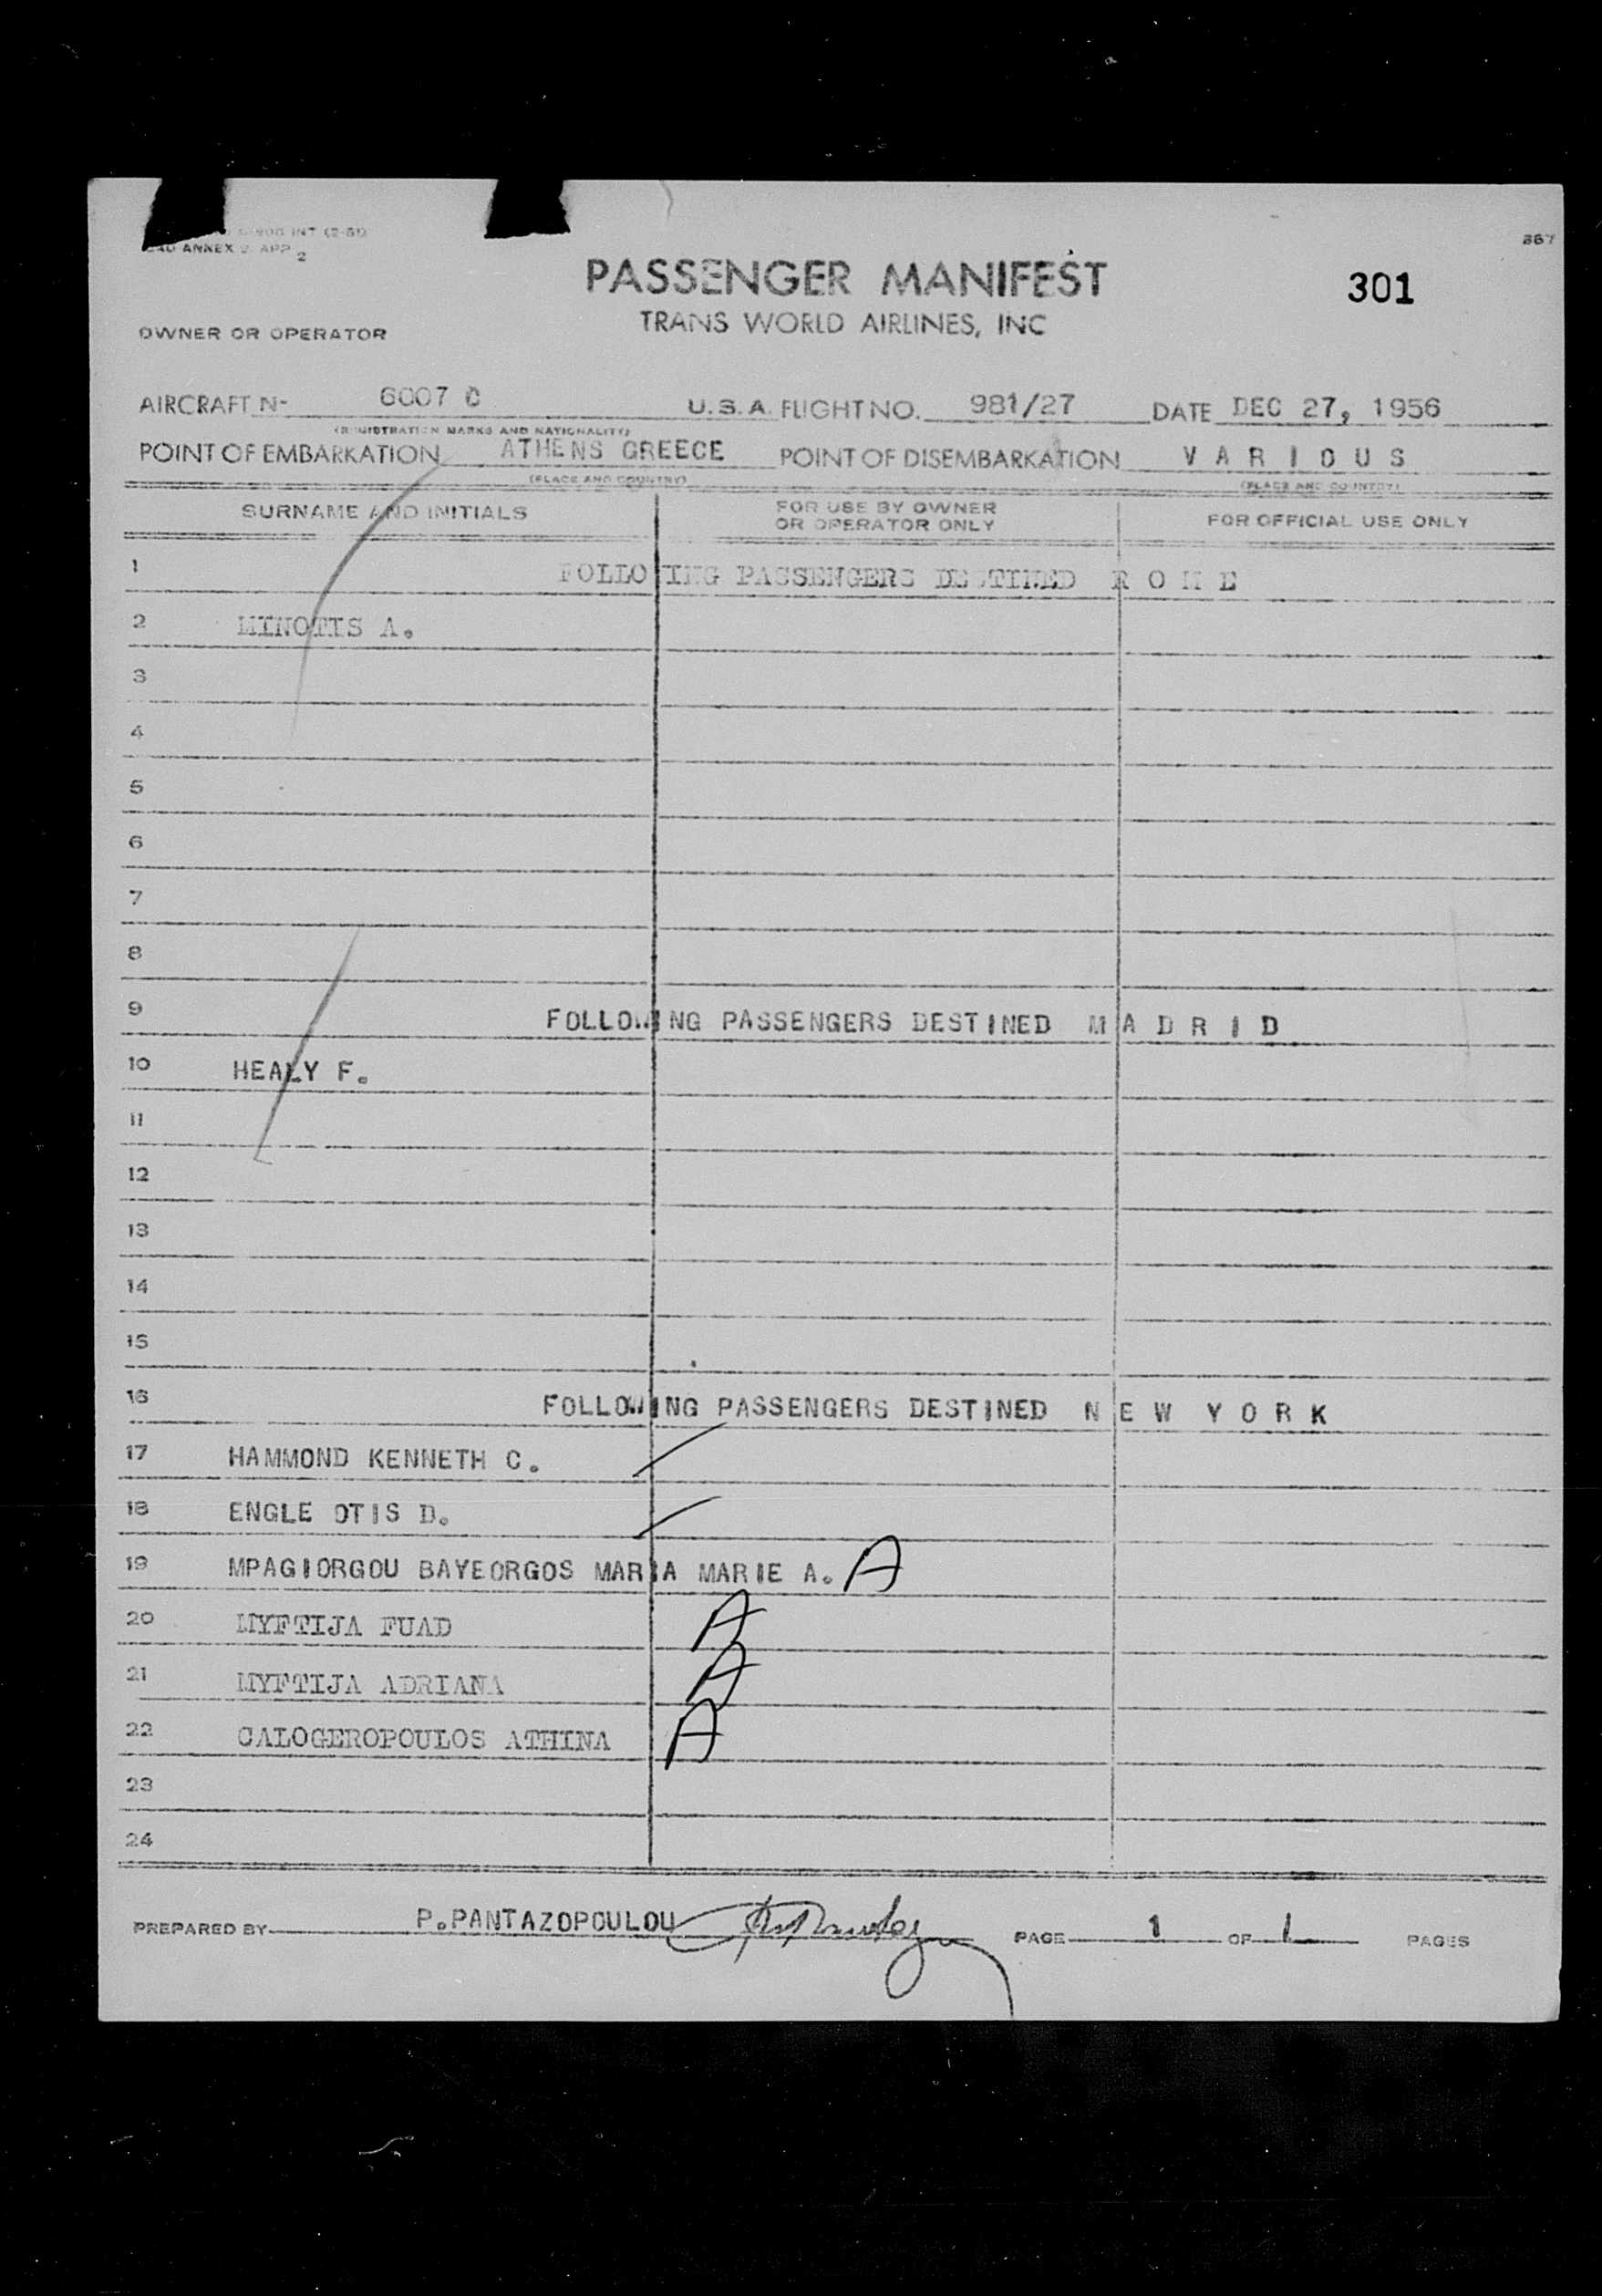 908 INT (2-51)
ANNEX 9 APP 2
367
PASSENGER MANIFEST
301
TRANS WORLD AIRLINES, INC
OWNER OR OPERATOR
AIRCRAFT N- 6007 C U.S.A. FLIGHT NO. 981/27 DATE DEC 27, 1956
(REGISTRATION MARKS AND NATIONALITY)
POINT OF EMBARKATION ATHENS GREECE POINT OF DISEMBARKATION V A R I O U S
(PLACE AND COUNTRY) (PLACE AND COUNTRY)
SURNAME AND INITIALS FOR USE BY OWNER OR OPERATOR ONLY FOR OFFICIAL USE ONLY
1 FOLLOWING PASSENGERS DESTINED R O M E
2 MINOTIS A.
3
4
5
6
7
8
9 FOLLOWING PASSENGERS DESTINED M A D R I D
10 HEALY F.
11
12
13
14
15
16 FOLLOWING PASSENGERS DESTINED N E W Y O R K
17 HAMMOND KENNETH C.
18 ENGLE OTIS D.
19 MPAGIORGOU BAYEORGOS MARIA MARIE A. A
20 MYFTIJA FUAD A
21 MYFTIJA ADRIANA A
22 CALOGEROPOULOS ATHINA A
23
24
PREPARED BY P.PANTAZOPOULOU PAGE 1 OF 1 PAGES